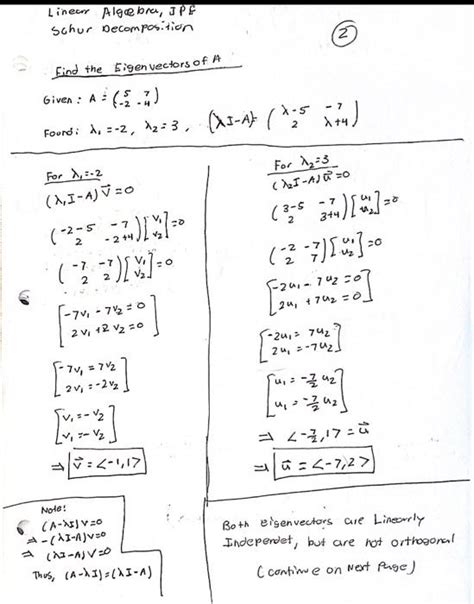 Linear Algebra, JPE
Schur Decomposition
②
Find the Eigenvectors of A
Given: A = (5 7
-2 -4)
Found: λ₁=-2, λ₂=3, (λI-A)= (λ-5 -7
2 λ+4)
For λ₁=-2
(λ₁I-A)v⃗=0
(-2-5 -7
2 -2+4)[v₁
v₂]=0
(-7 -7
2 2)[v₁
v₂]=0
[-7v₁ - 7v₂ = 0
2v₁ + 2v₂ = 0]
[-7v₁ = 7v₂
2v₁ = -2v₂]
[v₁ = -v₂
v₁ = -v₂]
⇒ v⃗ = <-1,1>
Note:
(A-λI)v=0
⇒ -(λI-A)v=0
⇒ (λI-A)v=0
Thus, (A-λI)=(λI-A)
For λ₂=3
(λ₂I-A)u⃗=0
(3-5 -7
2 3+4)[u₁
u₂]=0
(-2 -7
2 7)[u₁
u₂]=0
[-2u₁ - 7u₂ = 0
2u₁ + 7u₂ = 0]
[-2u₁ = 7u₂
2u₁ = -7u₂]
[u₁ = -7/2 u₂
u₁ = -7/2 u₂]
⇒ <-7/2, 1> = u⃗
⇒ u⃗ = <-7,2>
Both Eigenvectors are Linearly
Independet, but are not orthogonal
(continue on Next Page)